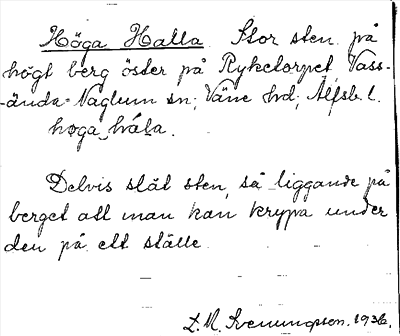 Höga Halla. Stor sten på
högt berg öster på Ryketorpet Vass-
-ända-Naglum sn; Väne hd; Älfsb. l.
höga hála.
Delvis slät sten, så liggande på
berget att man kan krypa under
den på ett ställe.
L. M. Svenungsson. 1936.